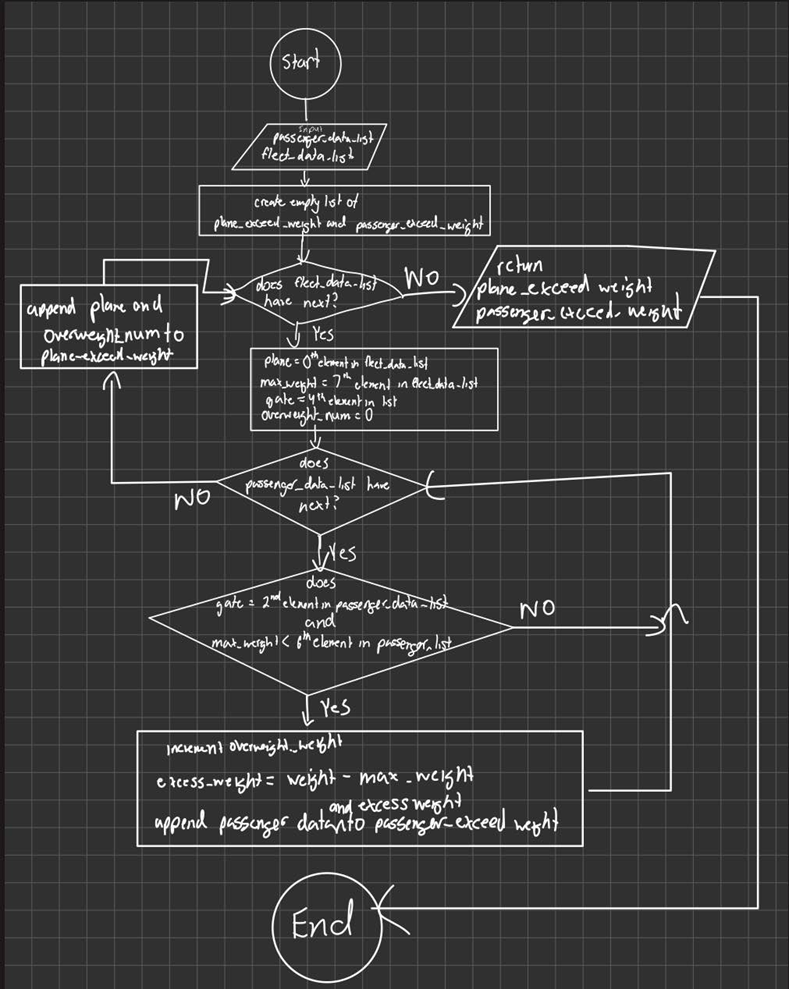 Start
Input
passenger_data_list
fleet_data_list
create empty list of
plane_exceed_weight and passenger_exceed_weight
does fleet_data_list
have next?
NO
return
plane_exceed weight
passenger_exceed_weight
append plane and
overweight_num to
plane_exceed_weight
Yes
plane = 0th element in fleet_data_list
max_weight = 7th element in fleet_data_list
gate = 4th element in list
overweight_num = 0
does
passenger_data_list have
next?
NO
Yes
does
gate = 2nd element in passenger_data_list
and
max_weight < 6th element in passenger_list
NO
Yes
increment overweight_weight
excess_weight = weight - max_weight
and excess weight
append passenger data into passenger_exceed weight
End